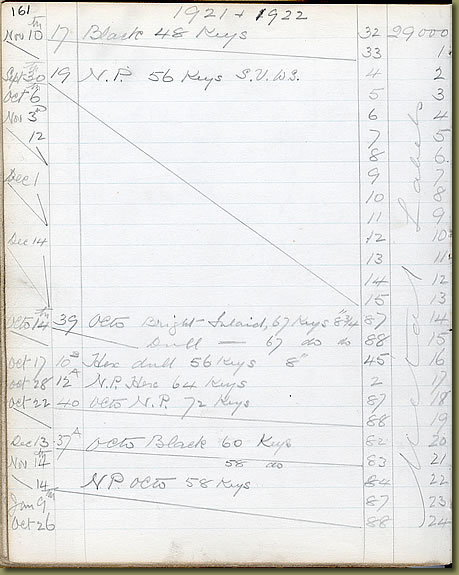 161 1921 + 1922
Nov 10th 17 Black 48 Keys 32 29000
33 1
Sept 30th 19 N.P. 56 Keys S.V. WS. 4 2
Oct 6th 5 3
Nov 3rd 6 4
12 7 5
8 6
Dec 1 9 7
10 8
11 9
Dec 14 12 10
13 11
14 12
15 13
Octo 14th 39 Octo Bright Inlaid, 67 Keys 8¾" 87 14
Drill — 67 do do 88 15
Oct 17 10B Hex drill 56 Keys 8" 45 16
Oct 28 12A N.P. Hex 64 Keys 2 17
Oct 22 40 Octo N.P. 72 Keys 87 18
88 19
Dec 13 37A Octo Black 60 Keys 82 20
Nov 14th 58 do 83 21
14 N.P. Octo 58 Keys 84 22
Jan 9th 87 23
Oct 26 88 24